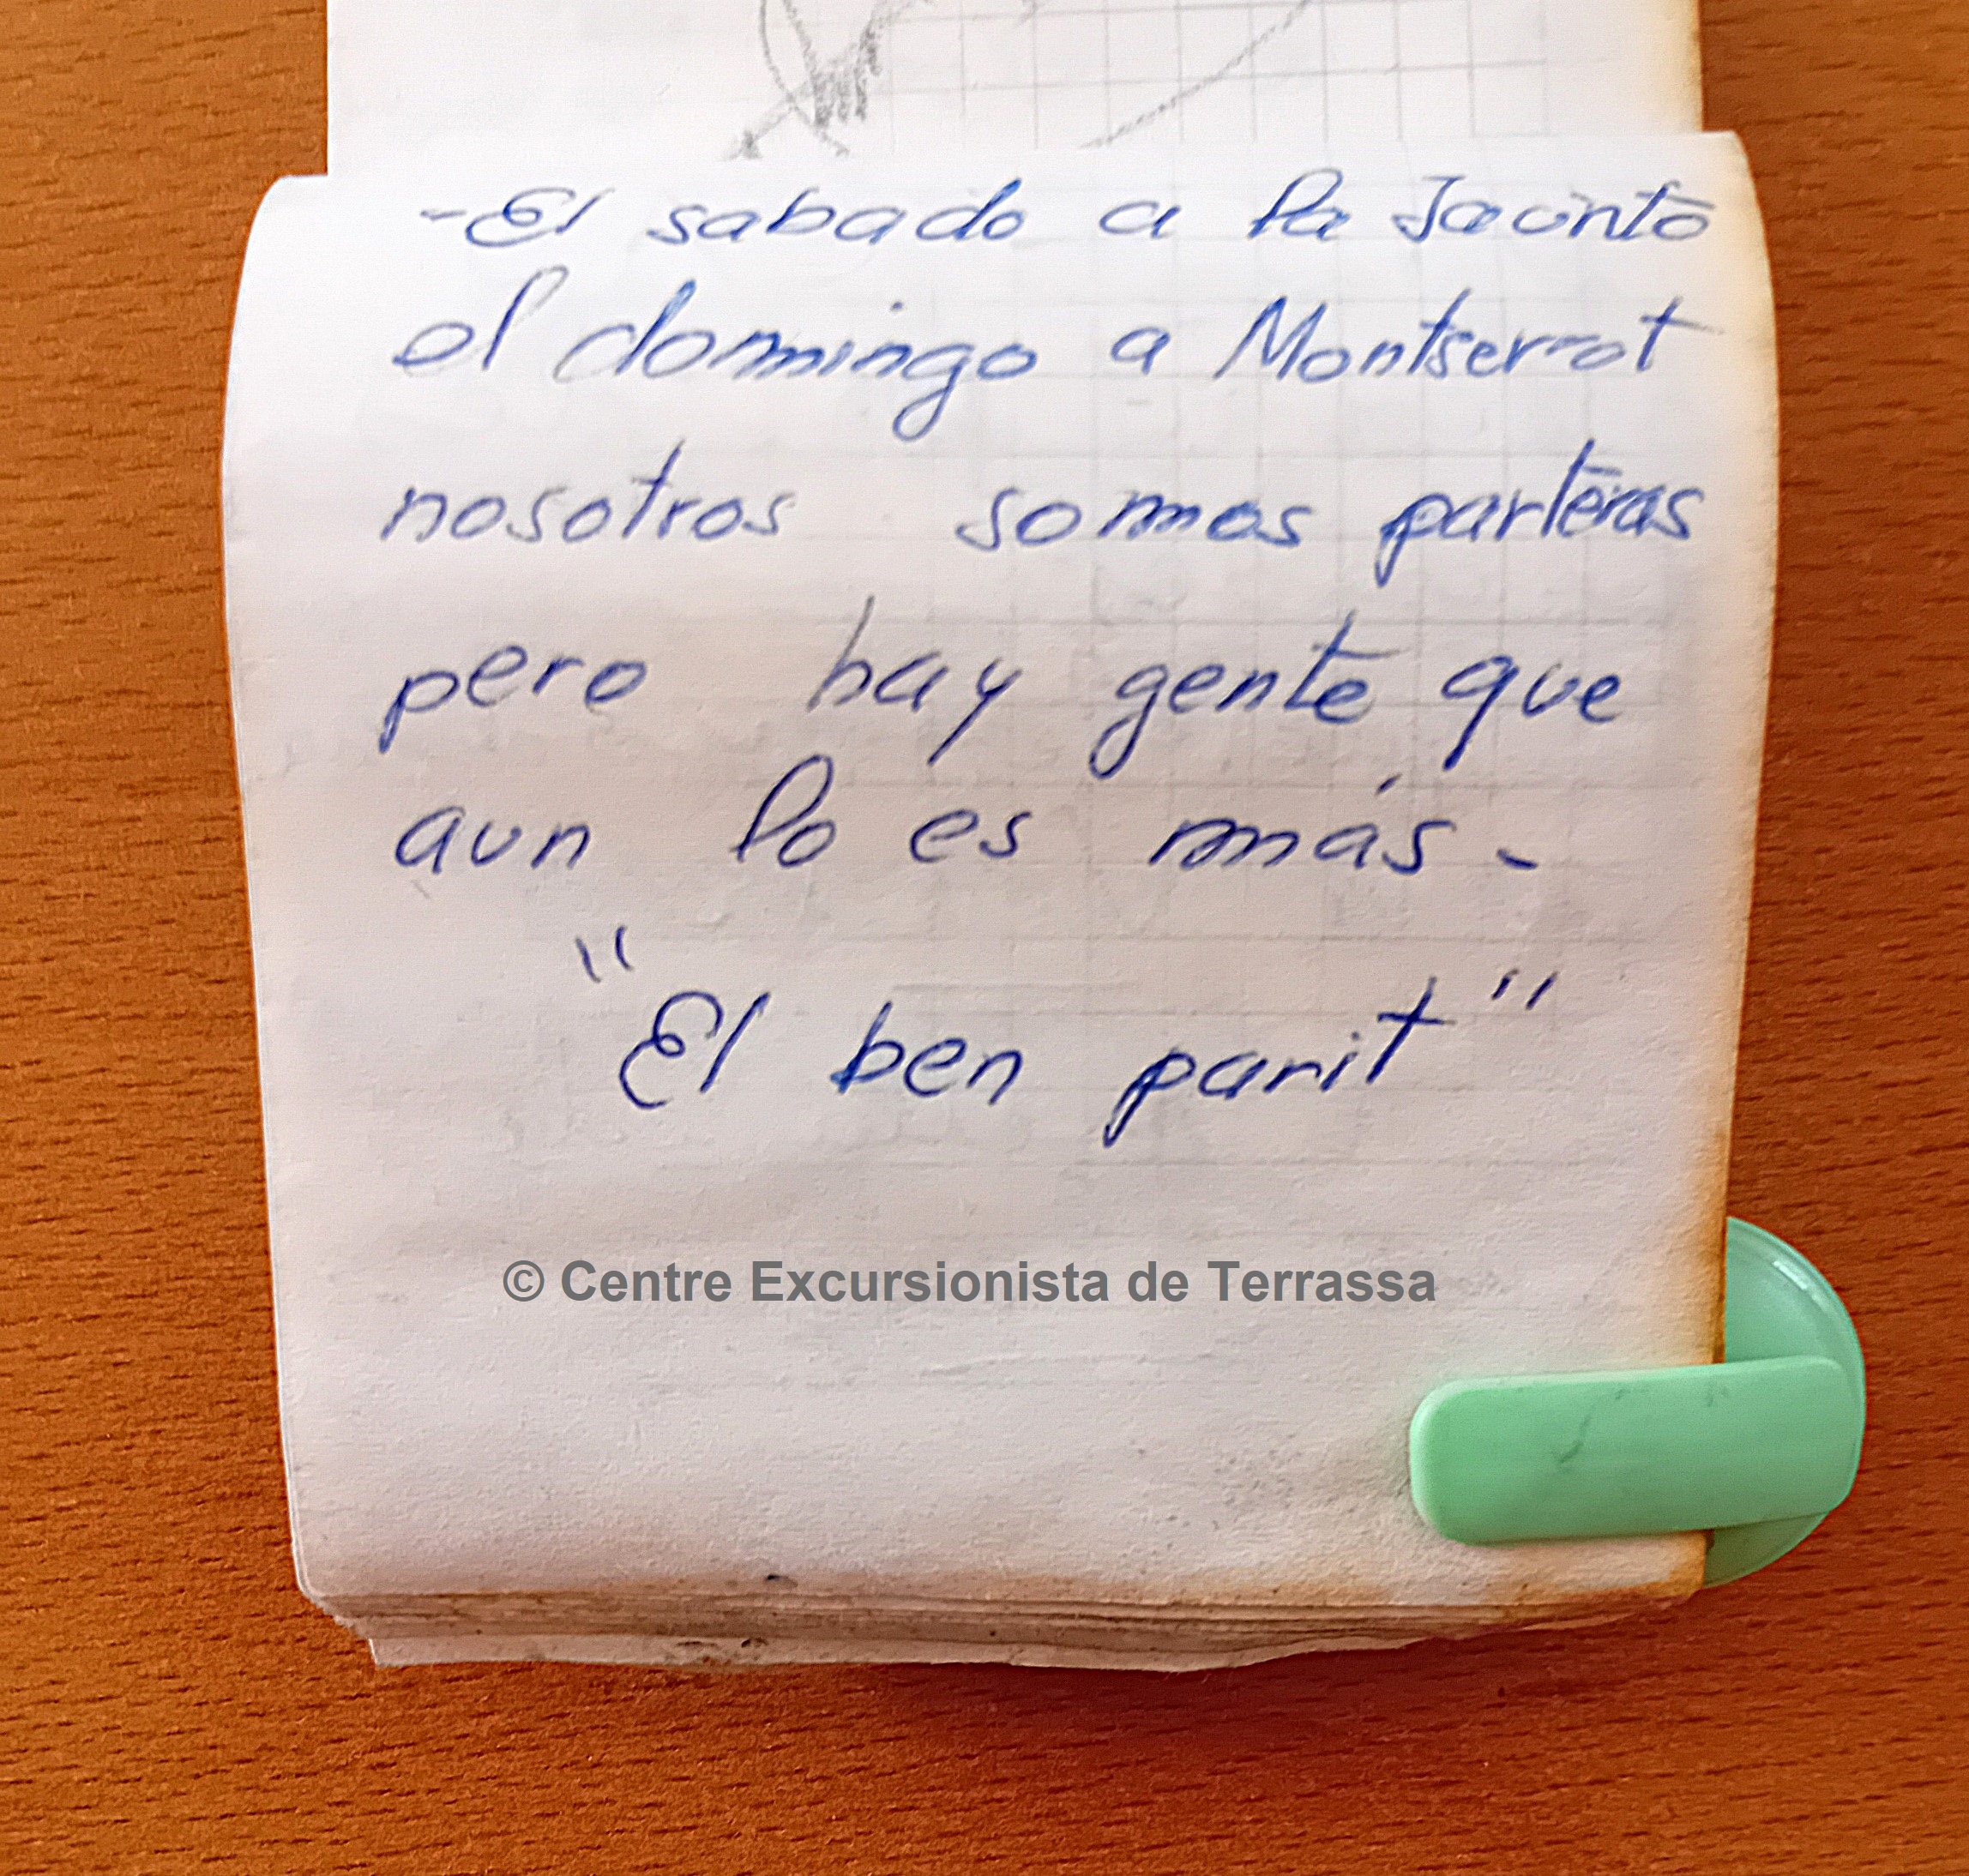 -El sabado a la Jacinto
el domingo a Montserrat
nosotros somos parteras
pero hay gente que
aun lo es más.
"El ben parit"
© Centre Excursionista de Terrassa